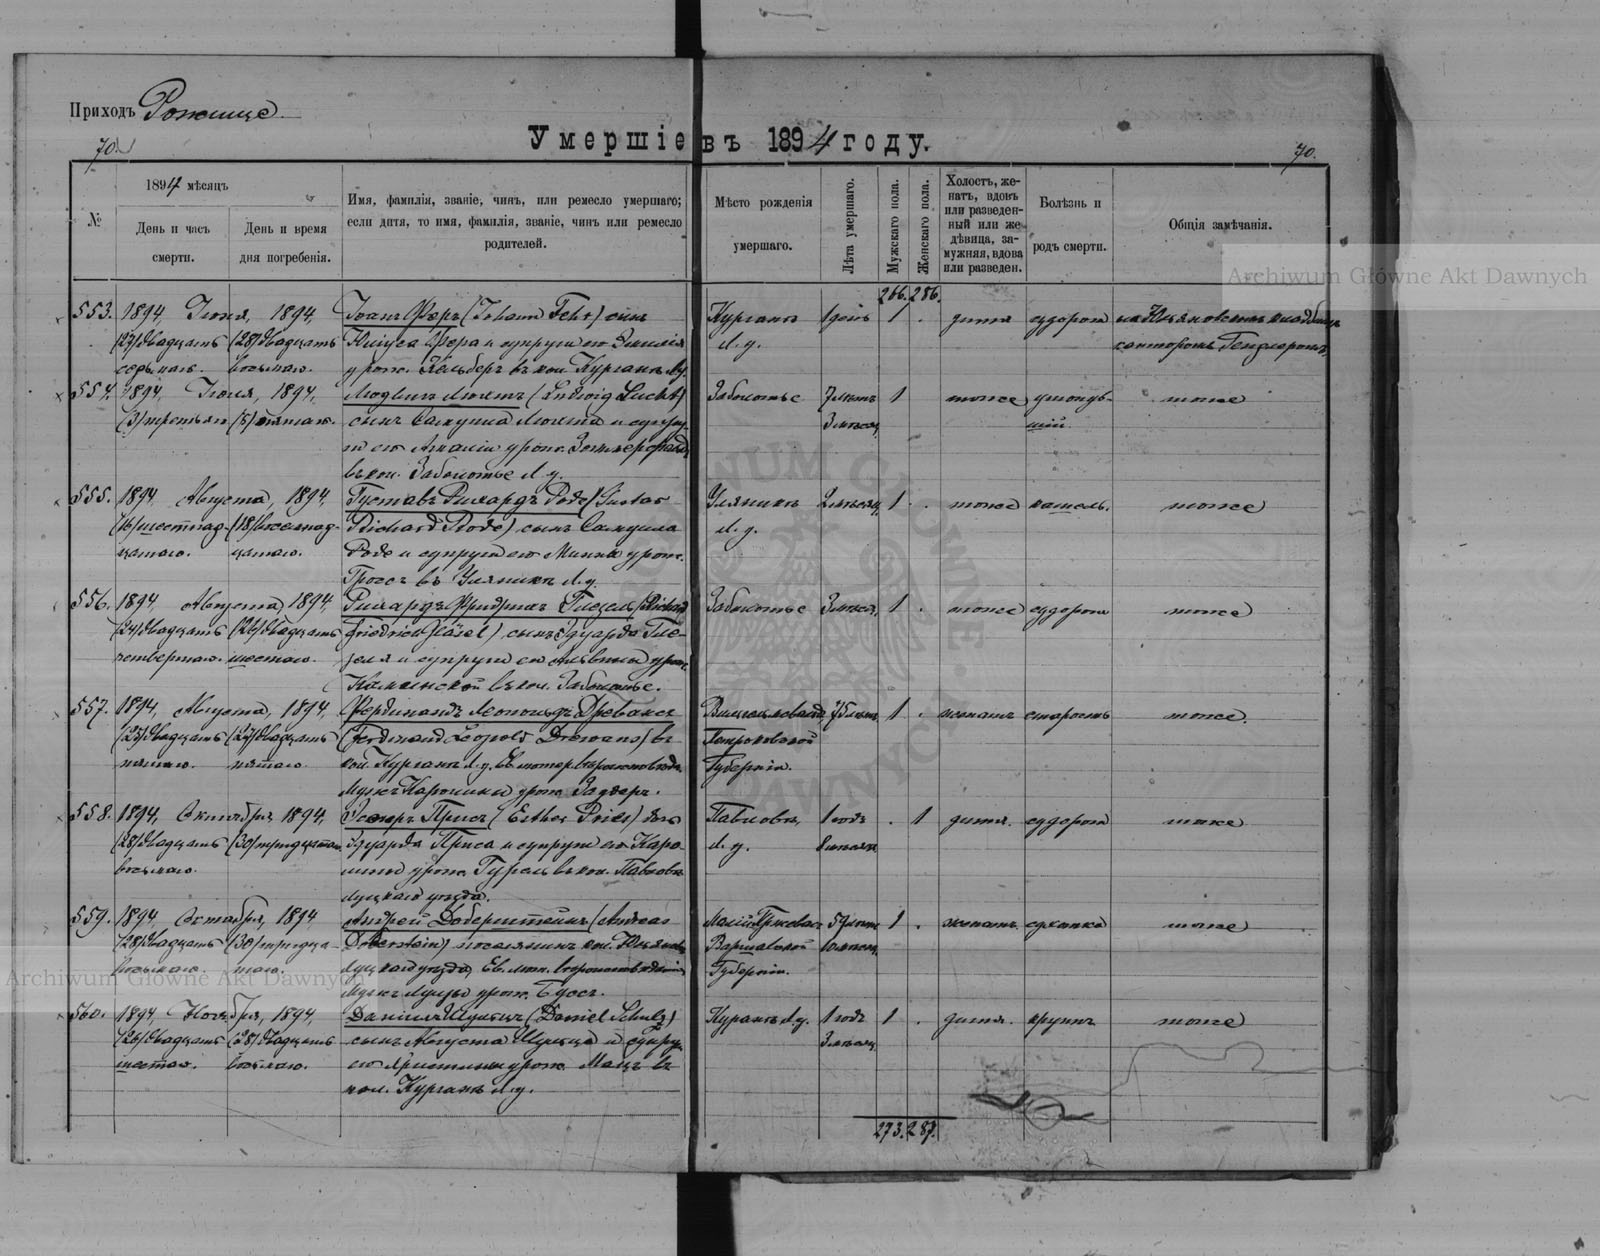 Приходъ Рожище
Умершіе въ 1894 году.
70. 70.
№
1894 мѣсяцъ
День и часъ смерти.
День и время дня погребенія.
Имя, фамилія, званіе, чинъ, или ремесло умершаго;
если дитя, то имя, фамилія, званіе, чинъ или ремесло
родителей.
Мѣсто рожденія
умершаго.
Лѣта умершаго.
Мужскаго пола.
Женскаго пола.
Холостъ, же-
натъ, вдовъ
или разведен-
ный или же
дѣвица, за-
мужняя, вдова
или разведен.
Болѣзнь и
родъ смерти.
Общія замѣчанія.
266. 286.
553. 1894 Іюня, 1894, Іоанъ Феръ (Johann Fehr) сынъ Курганъ 1 день 1 . дитя судорога
(27) двадцать (28) двадцать Юліуса Фера и супруги его Эмиліи Л. у. канторомъ
седьмаго. восьмаго. урож. въ кол. Курганъ Лу.
554. 1894, Іюля, 1894, Людвигъ Люхтъ (Ludwig Lucht) Заболотье 7 лѣтъ 1 тоже тоже
(3) третьяго (5) пятаго. сынъ Самуила Люхта и супру- 3 мѣсяц.
ги его Амаліи урож.
въ кол. Заболотье Л. у.
555. 1894 Августа, 1894, Густавъ Рихардъ Роде (Gustav Уляники 2 мѣсяц. 1 . тоже кашель. тоже
(16) шестнад- (18) восемнад- Richard Rode) сынъ Самуила Л. у.
цатаго. цатаго. Роде и супруги его Минны урож.
Гроссъ въ Уляники Л. у.
556. 1894, Августа, 1894, Рихардъ Фридрихъ Глезель (Richard Заболотье 3 мѣсяц. 1 . тоже судорога тоже
(24) двадцать (26) двадцать Friedrich Gläsel) сынъ Эдуарда Гле-
четвертаго. шестаго. зеля и супруги его урож.
въ кол. Заболотье.
557. 1894, Августа, 1894, Фердинандъ Леопольдъ Древансъ 1 . женатъ старость тоже.
(25) двадцать (27) двадцать (Ferdinand Leopold Drewans) въ Петроковской
пятаго. кол. Курганъ Л. у. Ев. лютер. вѣроисповѣд. Губерніи.
Мужъ Каролины урож.
558. 1894, Октября, 1894, Эстеръ Присъ (Esther Pries) дочь Павловка 1 годъ . 1 дитя. судорога тоже
(28) двадцать (30) тридцатаго. Эдуарда Приса и супруги его Каро- Л. у. 8 мѣсяц.
восьмаго. лины урож. въ кол. Павловка
луцкаго уѣзда.
559. 1894 Октября, 1894 Андрей Доберштейнъ (Andreas 59 лѣтъ 1 . женатъ. сухотка тоже
(28) двадцать (30) тридца- Doberstein) поселянинъ кол. Варшавской
восьмаго. таго. Луцкаго уѣзда, Ев. лют. вѣроисповѣданія Губерніи.
Мужъ Луизы урож. Буссъ.
560. 1894, Ноября, 1894, Даніилъ Шульцъ (Daniel Schulz) Курганъ Л. у. 1 годъ 1 . дитя. крупъ тоже
(26) двадцать (28) двадцать сынъ Августа Шульца и супруги 3 мѣсяц.
шестаго. восьмаго. его Христины урож. въ
кол. Курганъ Л. у.
273. 287.
Archiwum Główne Akt Dawnych
Archiwum Główne Akt Dawnych